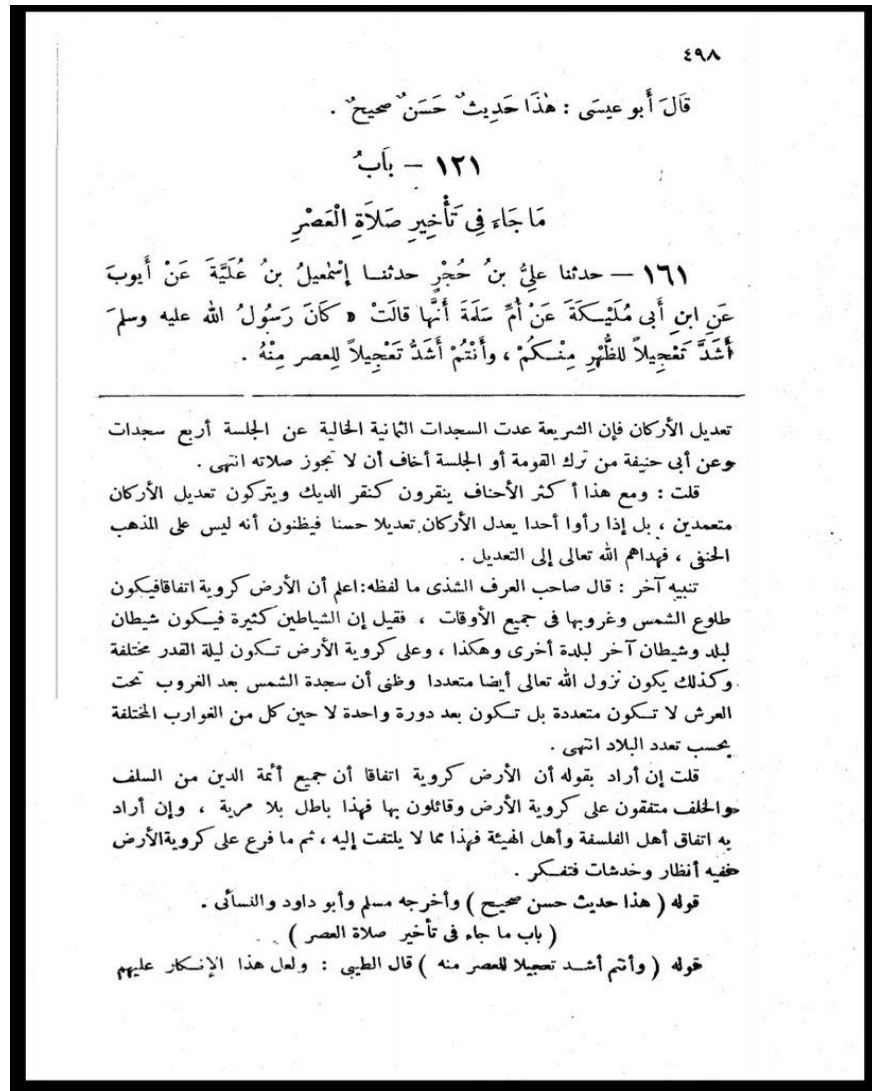 ٤٩٨
قَالَ أَبو عيسَى : هٰذَا حَدِيثٌ حَسَنٌ صحيحٌ .
١٢١ – بَابُ
مَا جَاءَ فِى تَأْخِيرِ صَلَاةِ الْعَصْرِ
١٦١ – حدثنا علىُّ بنُ حُجْرٍ حدثنا إِسْمٰعيلُ بنُ عُلَيَّةَ عَنْ أَيوبَ
عَنِ ابنِ أَبى مُلَيْكَةَ عَنْ أُمِّ سَلَمَةَ أَنَّها قالَتْ « كَانَ رَسُولُ الله عليه وسلمَ
أَشَدَّ تَعْجِيلاً للظُّهْرِ مِنْكُمْ ، وأَنْتُمْ أَشَدُّ تَعْجِيلاً لِلعصر مِنْهُ .
تعديل الأركان فإن الشريعة عدت السجدات الثمانية الخالية عن الجلسة أربع سجدات
وعن أبى حنيفة من ترك القومة أو الجلسة أخاف أن لا تجوز صلاته انتهى .
قلت : ومع هذا أكثر الأحناف ينقرون كنقر الديك ويتركون تعديل الأركان
متعمدين ، بل إذا رأوا أحدا يعدل الأركان تعديلا حسنا فيظنون أنه ليس على المذهب
الحنفى ، فهداهم الله تعالى إلى التعديل .
تنبيه آخر : قال صاحب العرف الشذى ما لفظه:اعلم أن الأرض كروية اتفاقافيكون
طلوع الشمس وغروبها فى جميع الأوقات ، فقيل إن الشياطين كثيرة فيكون شيطان
لبلد وشيطان آخر لبلدة أخرى وهكذا ، وعلى كروية الأرض تكون ليلة القدر مختلفة
وكذلك يكون نزول الله تعالى أيضا متعددا وظنى أن سجدة الشمس بعد الغروب تحت
العرش لا تكون متعددة بل تكون بعد دورة واحدة لا حين كل من الغوارب المختلفة
بحسب تعدد البلاد انتهى .
قلت إن أراد بقوله أن الأرض كروية اتفاقا أن جميع أئمة الدين من السلف
والخلف متفقون على كروية الأرض وقائلون بها فهذا باطل بلا مرية ، وإن أراد
به اتفاق أهل الفلسفة وأهل الهيئة فهذا مما لا يلتفت إليه ، ثم ما فرع على كرويةالأرض
ففيه أنظار وخدشات فتفكر .
قوله ( هذا حديث حسن صحيح ) وأخرجه مسلم وأبو داود والنسائى .
( باب ما جاء فى تأخير صلاة العصر )
قوله ( وأنتم أشد تعجيلا للعصر منه ) قال الطيبى : ولعل هذا الإنكار عليهم